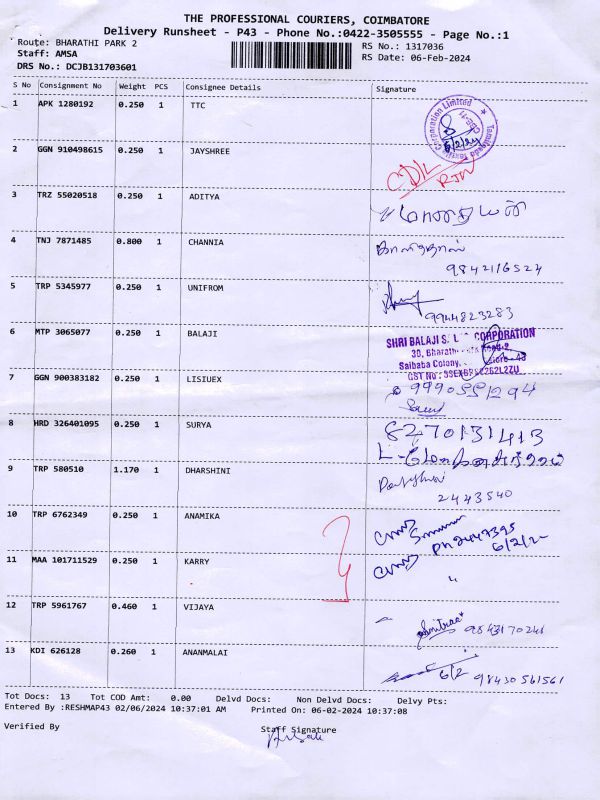 THE PROFESSIONAL COURIERS, COIMBATORE
Delivery Runsheet - P43 - Phone No.:0422-3505555 - Page No.:1
Route: BHARATHI PARK 2
RS No.: 1317036
Staff: AMSA
RS Date: 06-Feb-2024
DRS No.: DCJB131703601
S No Consignment No Weight PCS Consignee Details Signature
1 APK 1280192 0.250 1 TTC
Corporation Limited
6/2/24
2 GGN 910498615 0.250 1 JAYSHREE
CD/L
RJN
3 TRZ 55020518 0.250 1 ADITYA
4 TNJ 7871485 0.800 1 CHANNIA
9842116524
5 TRP 5345977 0.250 1 UNIFROM
9944823283
6 MTP 3065077 0.250 1 BALAJI
SHRI BALAJI CORPORATION
30,
Saibaba Colony,
GST No
7 GGN 900383182 0.250 1 LISIUEX
9990551294
8 HRD 326401095 0.250 1 SURYA
8270131413
9 TRP 580510 1.170 1 DHARSHINI
2443540
10 TRP 6762349 0.250 1 ANAMIKA
PH 2447395
6/2/2
11 MAA 101711529 0.250 1 KARRY
"
12 TRP 5961767 0.460 1 VIJAYA
9843170241
13 KDI 626128 0.260 1 ANANMALAI
6/2 9843056156
Tot Docs: 13 Tot COD Amt: 0.00 Delvd Docs: Non Delvd Docs: Delvy Pts:
Entered By :RESHMAP43 02/06/2024 10:37:01 AM Printed On: 06-02-2024 10:37:08
Verified By Staff Signature